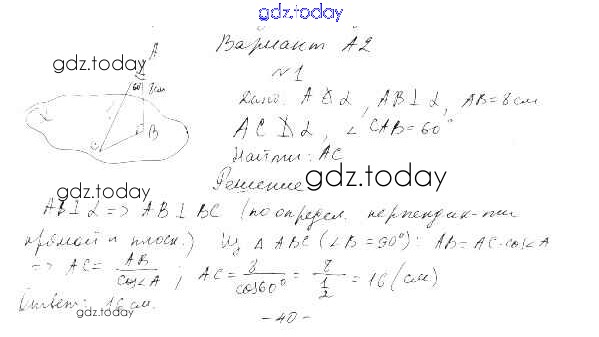 gdz.today
Вариант А2
gdz.today
№1
A
60° 8см
B
C
α
Дано: A ∉ α, AB ⊥ α, AB = 8 см
AC ⊥̸ α, ∠ CAB = 60°
Найти: AC
gdz.today
Решение
gdz.today
AB ⊥ α => AB ⊥ BC (по определ. перпендик-ти
прямой и плоск.) Из △ ABC (∠B = 90°): AB = AC · cos∠A
=> AC = AB / cos∠A ; AC = 8 / cos60° = 8 / 1/2 = 16 (см)
Ответ: 16 см.
gdz.today
- 40 -